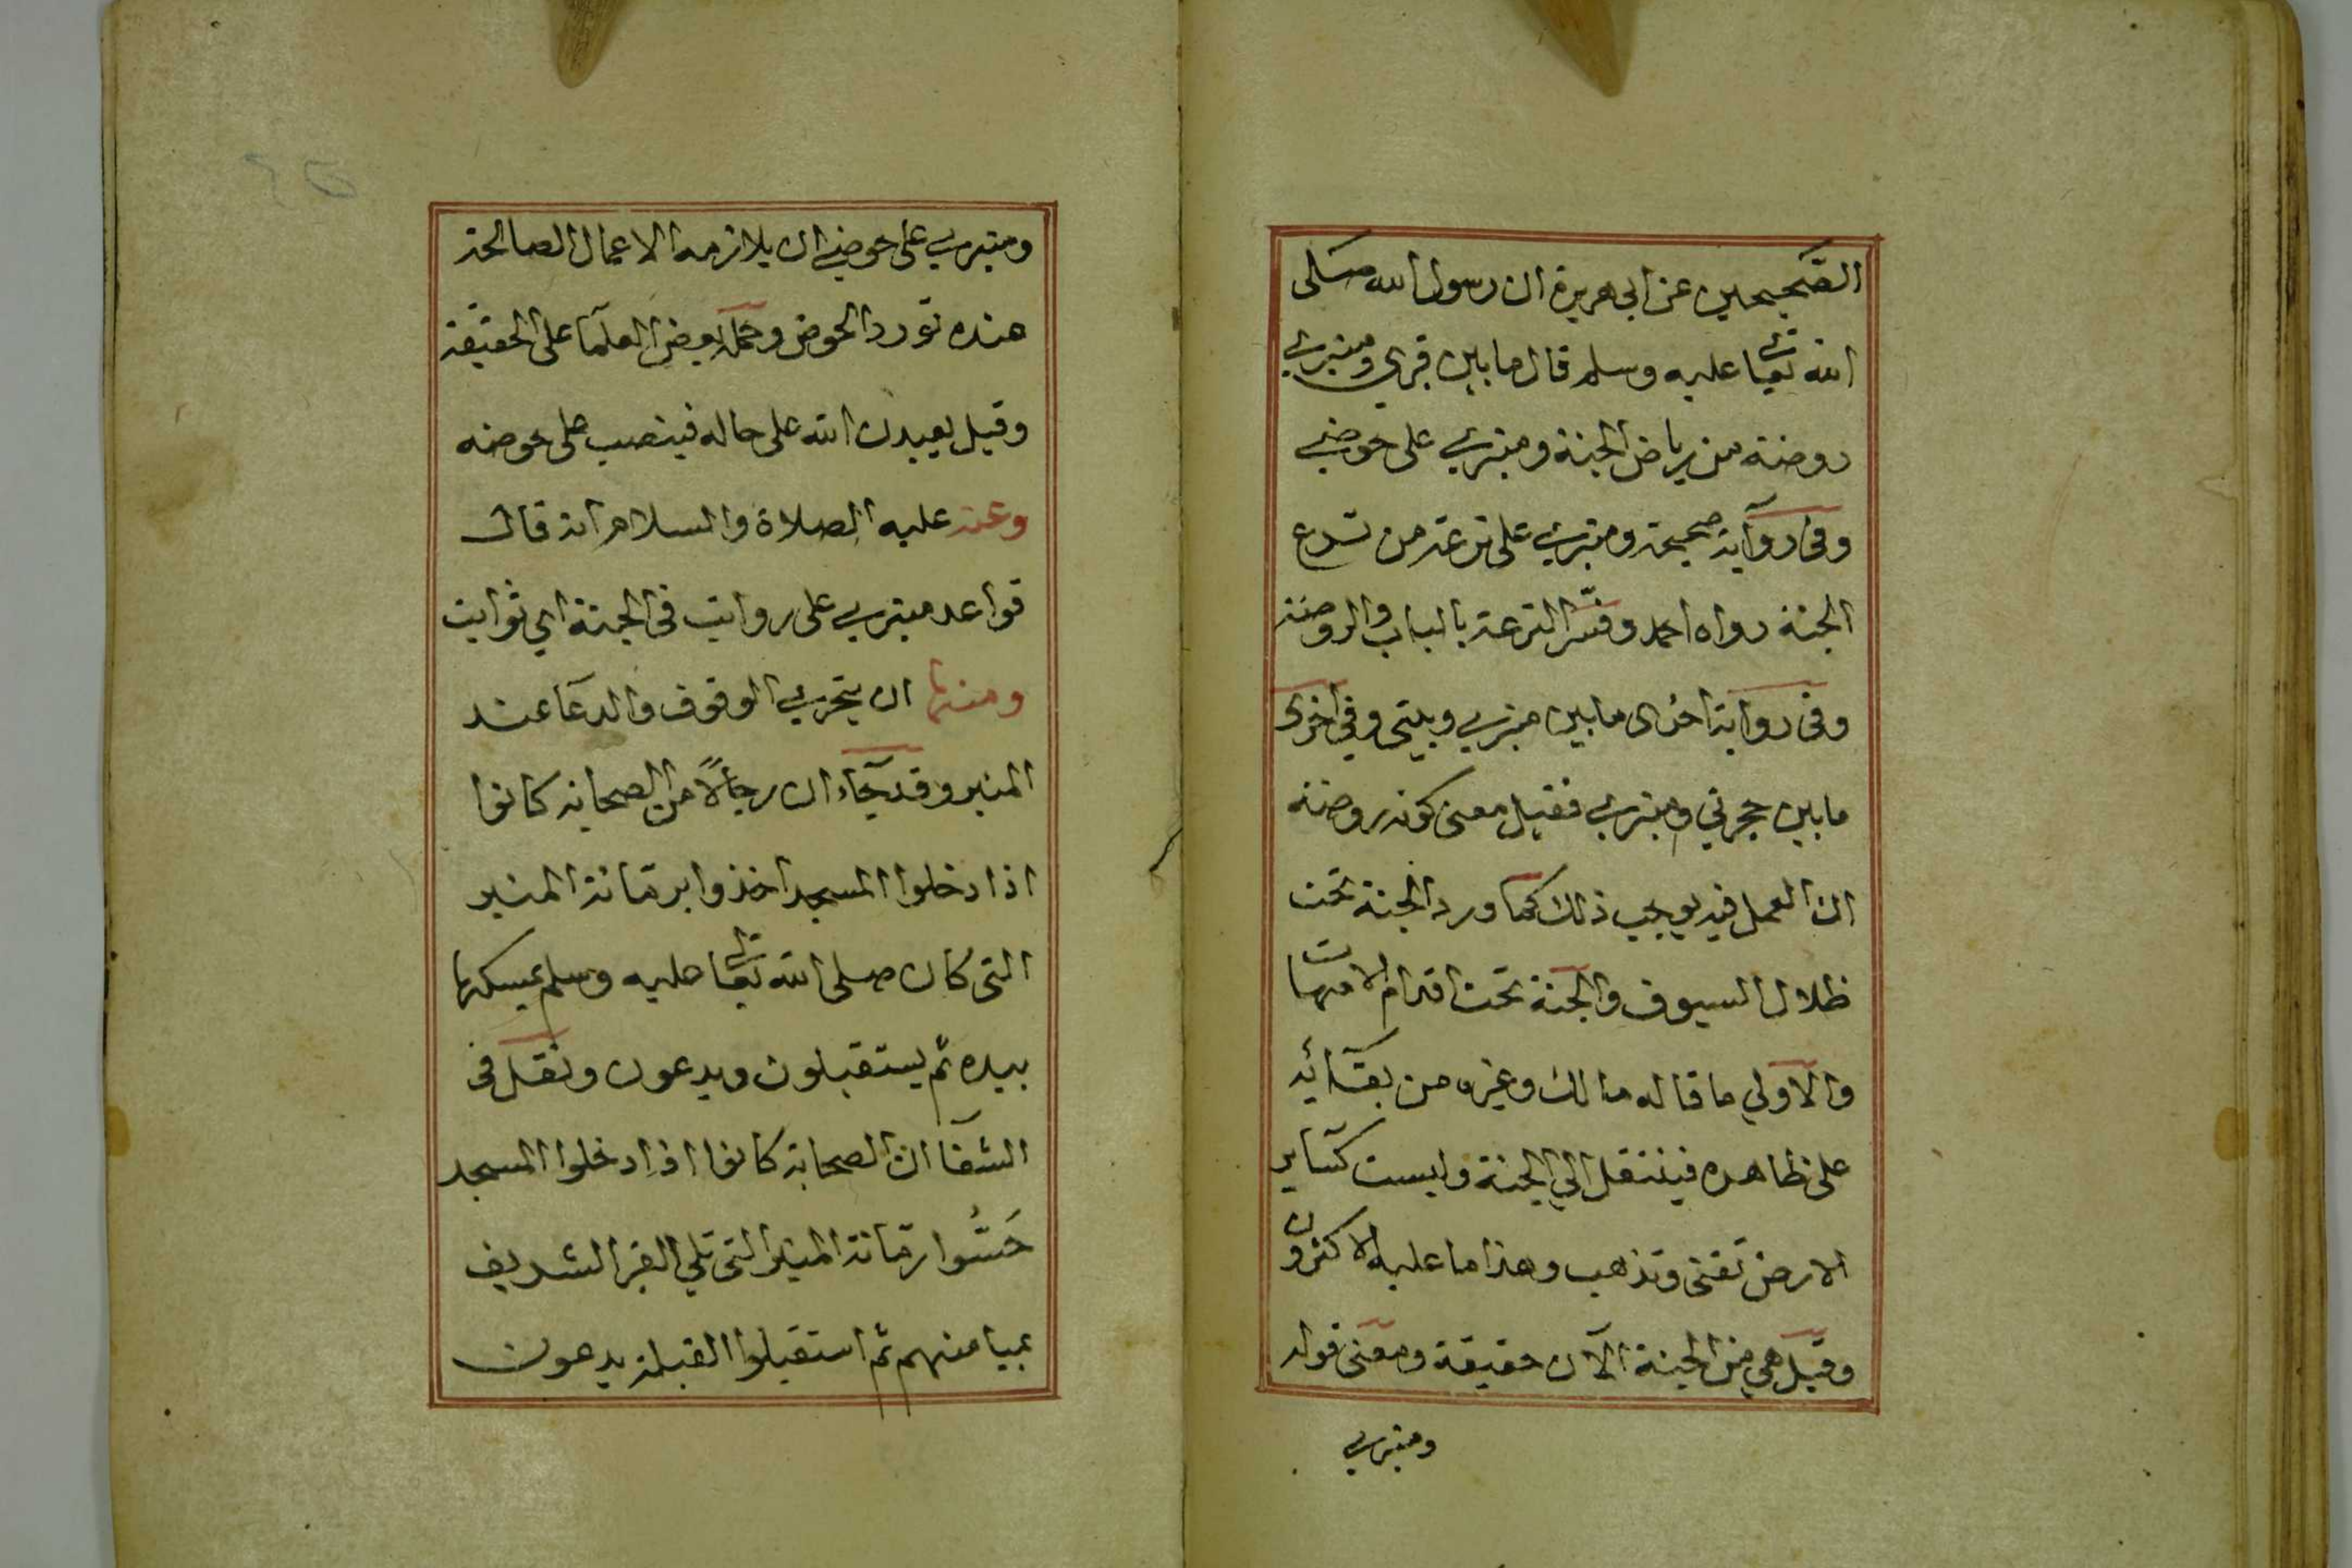 الصحيحين عن ابي هريرة ان رسول الله صلى
الله تعالى عليه وسلم قال ما بين قبري ومنبري
روضة من رياض الجنة ومنبري على حوضي
وفي رواية صحيحة ومنبري على ترعة من ترع
الجنة رواه احمد وفسّر الترعة بالباب والروضة
وفي رواية اخرى ما بين منبري وبيتي وفي اخرى
ما بين حجرتي ومنبري فقيل معنى كونه روضة
ان العمل فيه يوجب ذلك كما ورد الجنة تحت
ظلال السيوف والجنة تحت اقدام الامهات
والاولي ما قاله مالك وغيره من بقآئه
على ظاهره فينتقل الي الجنة وليست كساير
الارض تفنى وتذهب وهذا ما عليه الاكثرون
وقيل هي من الجنة الآن حقيقة ومعنى قوله
ومنبري
ومنبري على حوضي ان يلازمه الاعمال الصالحة
عنده تورد الحوض وحمله بعض العلمآ على الحقيقة
وقيل يعيده الله على حاله فينصب على حوضه
وعنه عليه الصلاة والسلام انه قال
قواعد منبري على رواتب في الجنة اي ثوابت
ومنها ان يتحري الوقوف والدعآ عند
المنبر وقد جآء ان رجالًا من الصحابة كانوا
اذا دخلوا المسجد اخذوا برمانة المنبر
التي كان صلى الله تعالى عليه وسلم يمسكها
بيده ثم يستقبلون ويدعون ونقل في
الشفآ ان الصحابة كانوا اذا دخلوا المسجد
حَسُّوا رمانة المنبر التي تلي القبر الشريف
بميامنهم ثم استقبلوا القبلة يدعون